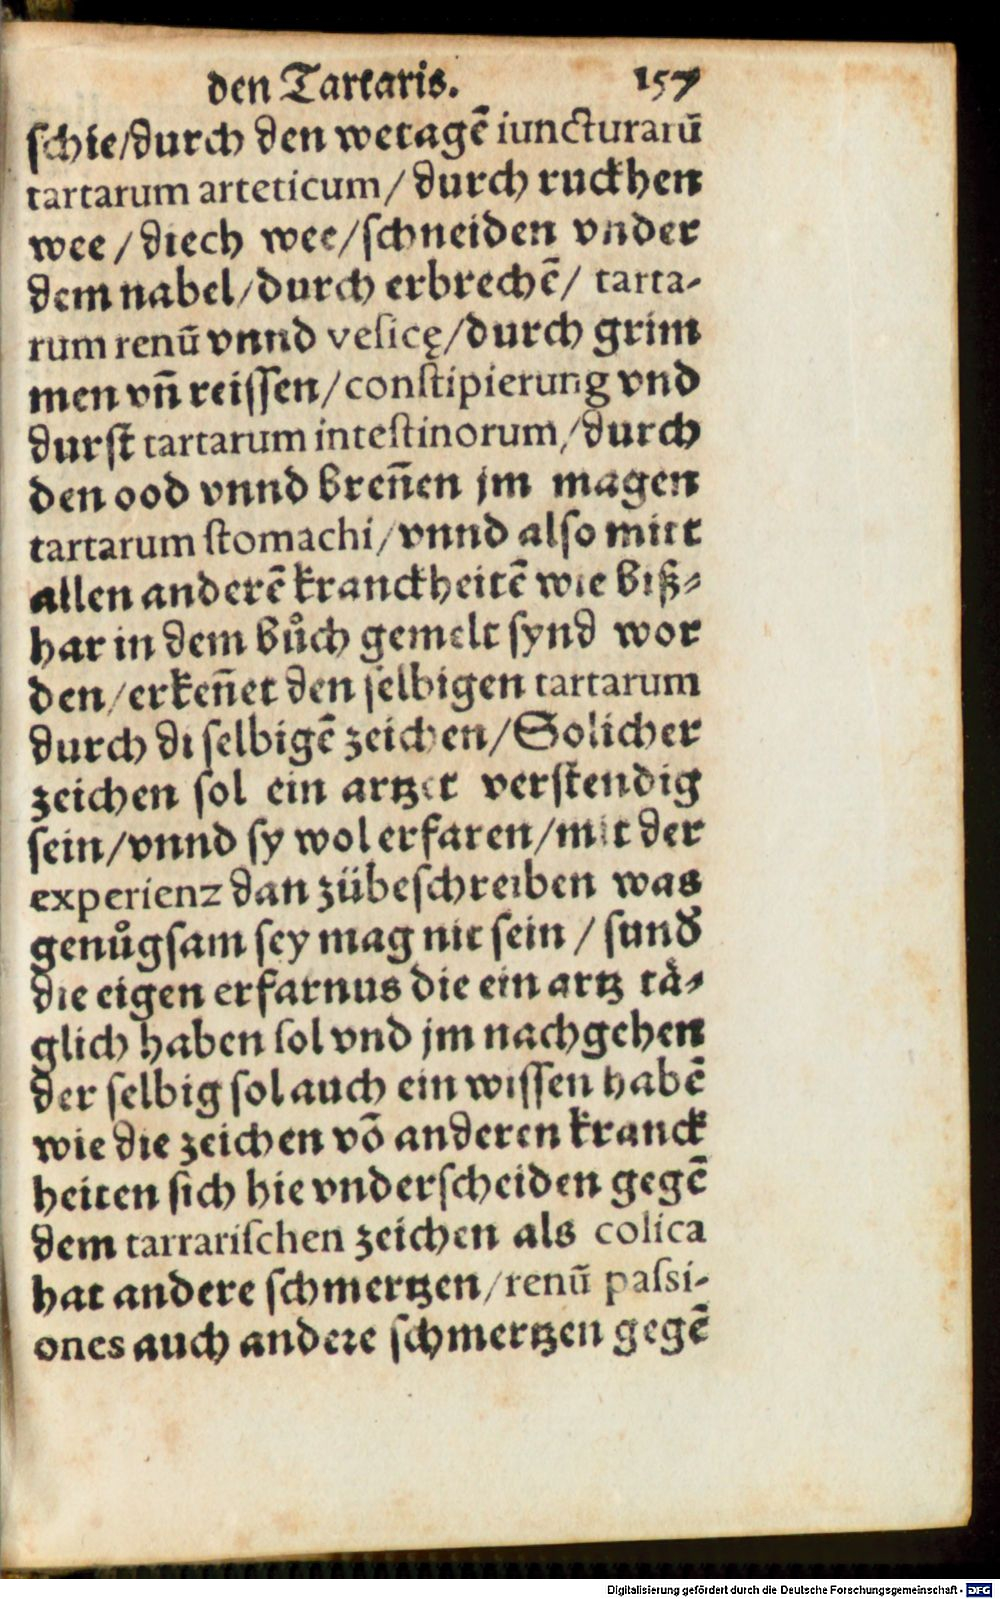 den Tartaris. 157
schie/durch den wetagē iuncturarū
tartarum arteticum/ durch ruckhen
wee / diech wee/schneiden vnder
dem nabel/durch erbrechē/ tarta-
rum renū vnnd vesicę/durch grim
men vn̄ reissen/constipierung vnd
durst tartarum intestinorum/durch
den ood vnnd bren̄en jm magen
tartarum stomachi/vnnd also mitt
allen anderē kranckheitē wie biß-
har in dem bůch gemelt synd wor
den/erken̄et den selbigen tartarum
durch di selbigē zeichen/Solicher
zeichen sol ein artzet verstendig
sein/vnnd sy wol erfaren/mit der
experienz dan zübeschreiben was
genůgsam sey mag nit sein / sund
die eigen erfarnus die ein artz tä-
glich haben sol vnd jm nachgehen
der selbig sol auch ein wissen habē
wie die zeichen vō anderen kranck
heiten sich hie vnderscheiden gegē
dem tarrarischen zeichen als colica
hat andere schmertzen/renū passi-
ones auch andere schmertzen gegē
Digitalisierung gefördert durch die Deutsche Forschungsgemeinschaft - DFG